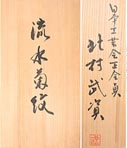 日本工芸会正会員
北村武資
流水菊紋